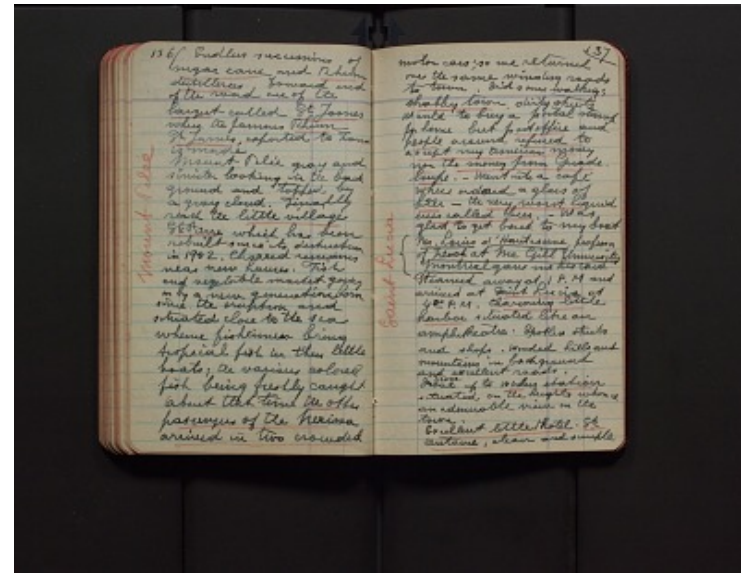 136/ Endless successions of
sugar cane and Rhum
distilleries. Toward end
of the road one of the
largest called St James
where the famous Rhum
St James, exported to
is made.
Mount Pelée gray and
sinister looking in the back
ground and topped by
a gray cloud. Finally
reach the little village
St Pierre which has been
rebuilt since its destruction
in 1902. Charred remains
near new houses. Fish
and vegetable market going
on by a new generation born
since the eruption and
situated close to the sea
where fishermen bring
tropical fish in their little
boats; the various colored
fish being freshly caught
about that time the other
passengers of the Nerissa
arrived in two crowded
Mount Pelée
137
motor cars; so we returned
over the same winding roads
to town. Did some walking;
shabby town, dirty streets
wanted to buy a postal stamp
for home but post office and
people around refused to
accept my american money
nor the money from Guade
loupe. - Went into a café
where ordered a glass of
beer - the very worst liquid
ever called beer. - Was
glad to get back to my boat
Mr. Louis d' Hauteserve, professor
of french at Mc Gill University
Montreal gave me his card
Steamed away at 1 P.M and
arrived at Saint Lucia at
P.M. Charming little
harbor situated like an
amphitheatre. Spotless streets
and shops. Wooded hills and
mountains in background
and excellent roads.
Drove up to
situated on the heights where
an admirable view on the
town.
Excellent little hotel - St
Antoine, clean and simple
Saint Lucia